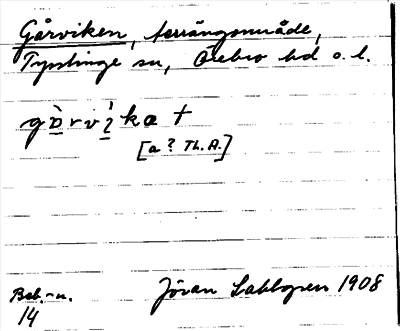 Gårviken, terrängområde,
Tysslinge sn, Örebro hd o. l.
gårvikat
[a? Th. A.]
Beb.-n. Jöran Sahlgren 1908
14